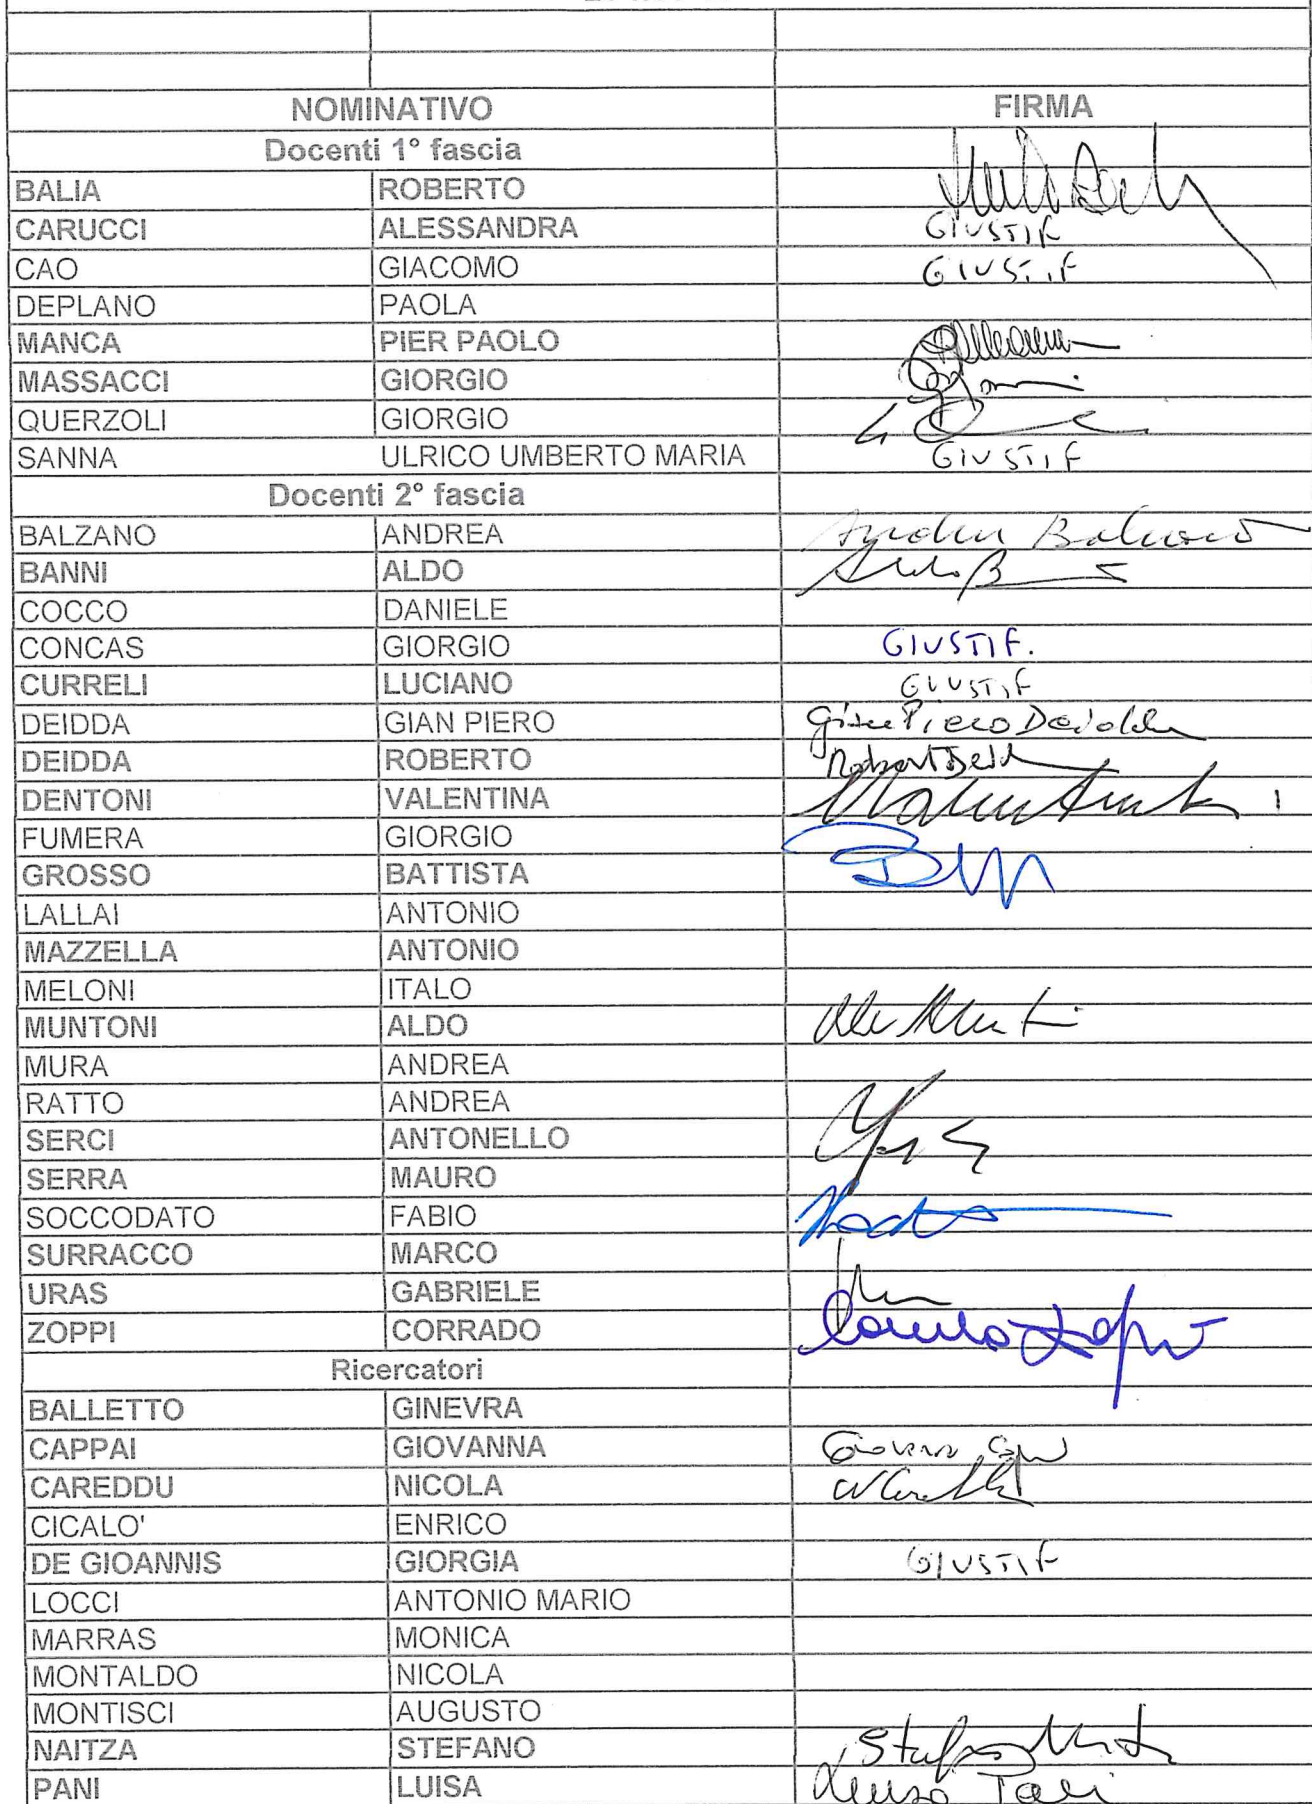 NOMINATIVO FIRMA
Docenti 1° fascia
BALIA ROBERTO
CARUCCI ALESSANDRA GIUSTIF
CAO GIACOMO GIUSTIF
DEPLANO PAOLA
MANCA PIER PAOLO
MASSACCI GIORGIO
QUERZOLI GIORGIO
SANNA ULRICO UMBERTO MARIA GIUSTIF
Docenti 2° fascia
BALZANO ANDREA Andrea Balzano
BANNI ALDO
COCCO DANIELE
CONCAS GIORGIO GIUSTIF.
CURRELI LUCIANO GIUSTIF
DEIDDA GIAN PIERO Gian Piero Deidda
DEIDDA ROBERTO
DENTONI VALENTINA
FUMERA GIORGIO
GROSSO BATTISTA
LALLAI ANTONIO
MAZZELLA ANTONIO
MELONI ITALO
MUNTONI ALDO
MURA ANDREA
RATTO ANDREA
SERCI ANTONELLO
SERRA MAURO
SOCCODATO FABIO
SURRACCO MARCO
URAS GABRIELE
ZOPPI CORRADO
Ricercatori
BALLETTO GINEVRA
CAPPAI GIOVANNA
CAREDDU NICOLA
CICALO' ENRICO
DE GIOANNIS GIORGIA GIUSTIF
LOCCI ANTONIO MARIO
MARRAS MONICA
MONTALDO NICOLA
MONTISCI AUGUSTO
NAITZA STEFANO
PANI LUISA Luisa Pani